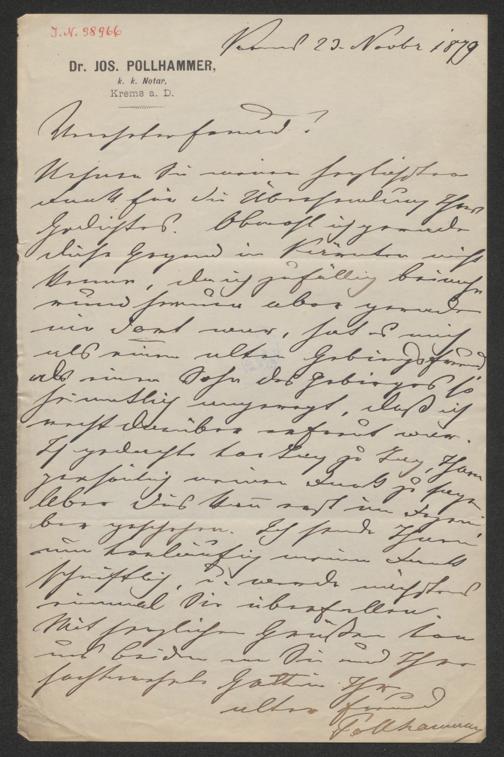 J. N. 98966
Krems 23. Novbr 1879
Dr. JOS. POLLHAMMER,
k. k. Notar,
Krems a. D.
Verehrter Freund!
Nehmen Sie meinen herzlichsten
Dank für die Übersendung Ihres
Gedichtes. Obwohl ich gerade
diese Gegend in Kärnten nicht
kenne, da ich zufällig beinahe
rund herum aber gerade
nie dort war, hat es mich
als einen alten Gebirgsfreund
als einen Sohn des Gebirges so
heimatlich angeregt, daß ich
recht darüber erfreut war.
Ich gedachte von Tag zu Tag, Ihnen
persönlich meinen Dank zu sagen
Aber das kann erst im
ber geschehen. Ich sende Ihnen
nun vorläufig meinen Dank
schriftlich, u. werde nächstens
einmal Sie überfallen.
Mit herzlichen Grüßen von
uns beiden an Sie und Ihre
hochverehrte Gattin Ihr
alter Freund
Pollhammer